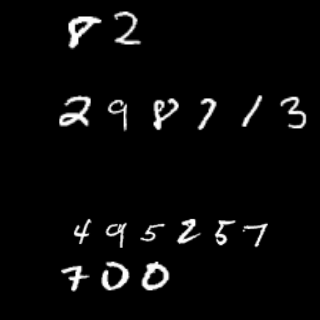 82
298713
495257
700